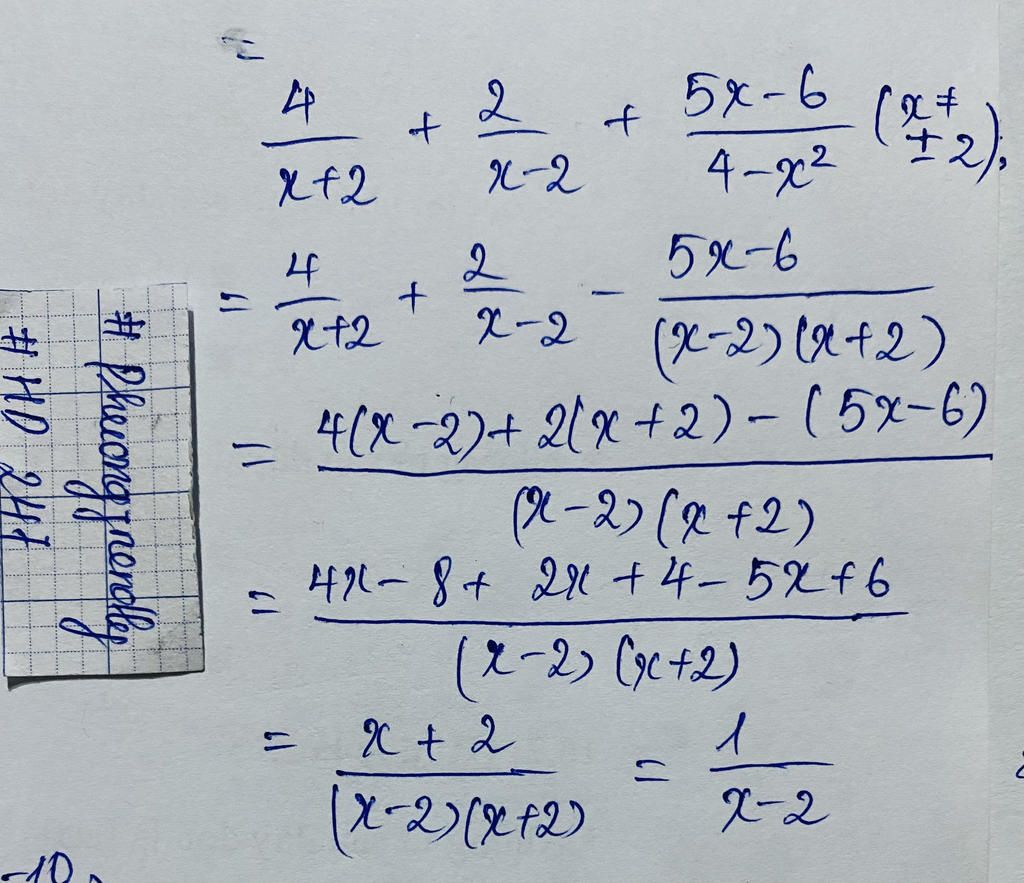 =
4/(x+2) + 2/(x-2) + (5x-6)/(4-x²) (x ≠ ±2);
= 4/(x+2) + 2/(x-2) - (5x-6)/((x-2)(x+2))
= (4(x-2)+2(x+2)-(5x-6))/((x-2)(x+2))
= (4x-8+2x+4-5x+6)/((x-2)(x+2))
= (x+2)/((x-2)(x+2)) = 1/(x-2)
-10